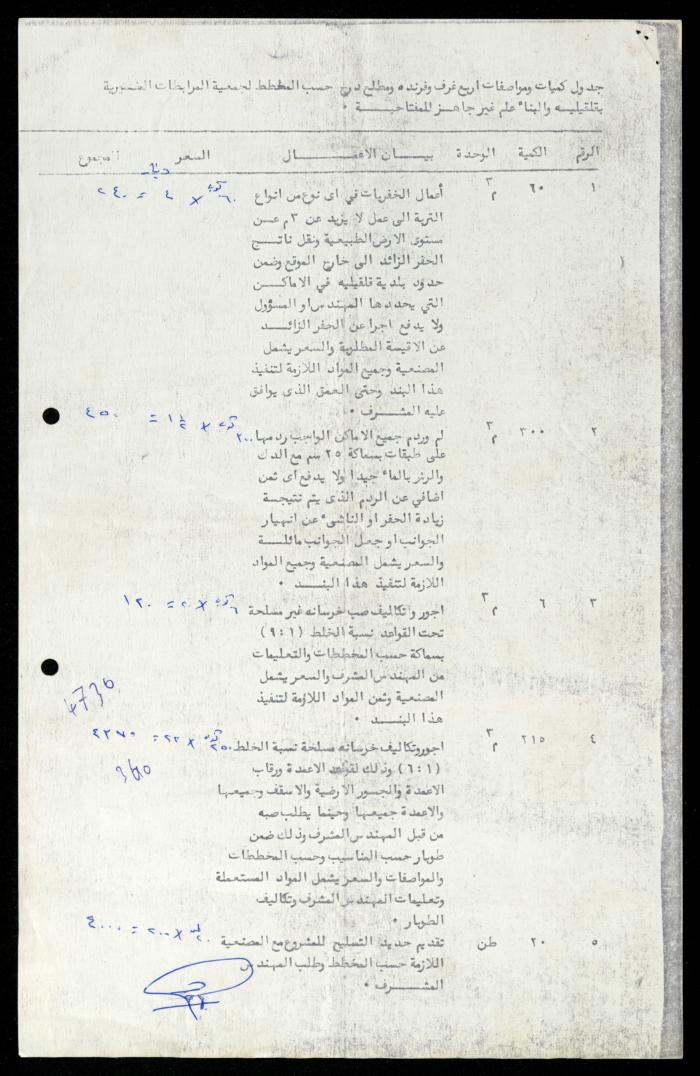 جدول كميات ومواصفات اربع غرف وفرنده ومطلع درج حسب المخطط لجمعية المرابطات الخيرية
بقلقيليه والبناء علم غير جاهز للمفتاحيـــة •
الرقم الكمية الوحدة بيــــان الاعمـــــــــال السعر المجموع
دينار
١ ٦٠ م٣ أعمال الحفريات في اى نوع من انواع ٦٠ × ٤ = ٢٤٠
التربة الى عمل لا يزيد عن ٣م عــن
مستوى الارض الطبيعية ونقل ناتـــج
الحفر الزائد الى خارج الموقع وضمن
حدود بلدية قلقيليه في الاماكـــن
التي يحددها المهندس او المسؤول
ولا يدفع اجرا عن الحفر الزائــــد
عن الاقيسة المطلوبة والسعر يشمل
المصنعية وجميع المواد اللازمة لتنفيذ
هذا البند وحتى العمق الذى يوافق
عليه المشــرف •
٢ ٣٠٠ م٣ لم وردم جميع الاماكن الواجب ردمها ٣٠٠ × ١½ = ٤٥٠
على طبقات بسماكة ٢٥ سم مع الدك
والرش بالماء جيدا ولا يدفع اى ثمن
اضافي عن الردم الذى يتم نتيجـة
زيادة الحفر او الناشىء عن انهيار
الجوانب او جعل الجوانب مائلــة
والسعر يشمل المصنعية وجميع المواد
اللازمة لتنفيذ هذا البنــد •
٣ ٦ م٣ اجور وتكاليف صب خرسانه غير مسلحة ٦ × ٢٠ = ١٢٠
تحت القواعد نسبة الخلط (٩:١)
بسماكة حسب المخططات والتعليمات
من المهندس المشرف والسعر يشمل
المصنعية وثمن المواد اللازمة لتنفيذ
هذا البنـــد •
4730
٤ ٢١٥ م٣ اجور وتكاليف خرسانه مسلحة نسبة الخلط
(٦:١) وذلك لقواعد الاعمدة ورقاب
340
الاعمدة والجسور الارضية والاسقف وجميعها
والاعمدة جميعها وحيثما يطلب صبه
من قبل المهندس المشرف وذلك ضمن
طوبار حسب المناسيب وحسب المخططات
والمواصفات والسعر يشمل المواد المستعملة
وتعليمات المهندس المشرف وتكاليف
الطوبار •
٥ ٢٠ طن تقديم حديد التسليح للمشروع مع المصنعية ٢٠ × ٢٠٠ = ٤٠٠٠
اللازمة حسب المخطط وطلب المهندس
المشـــرف •